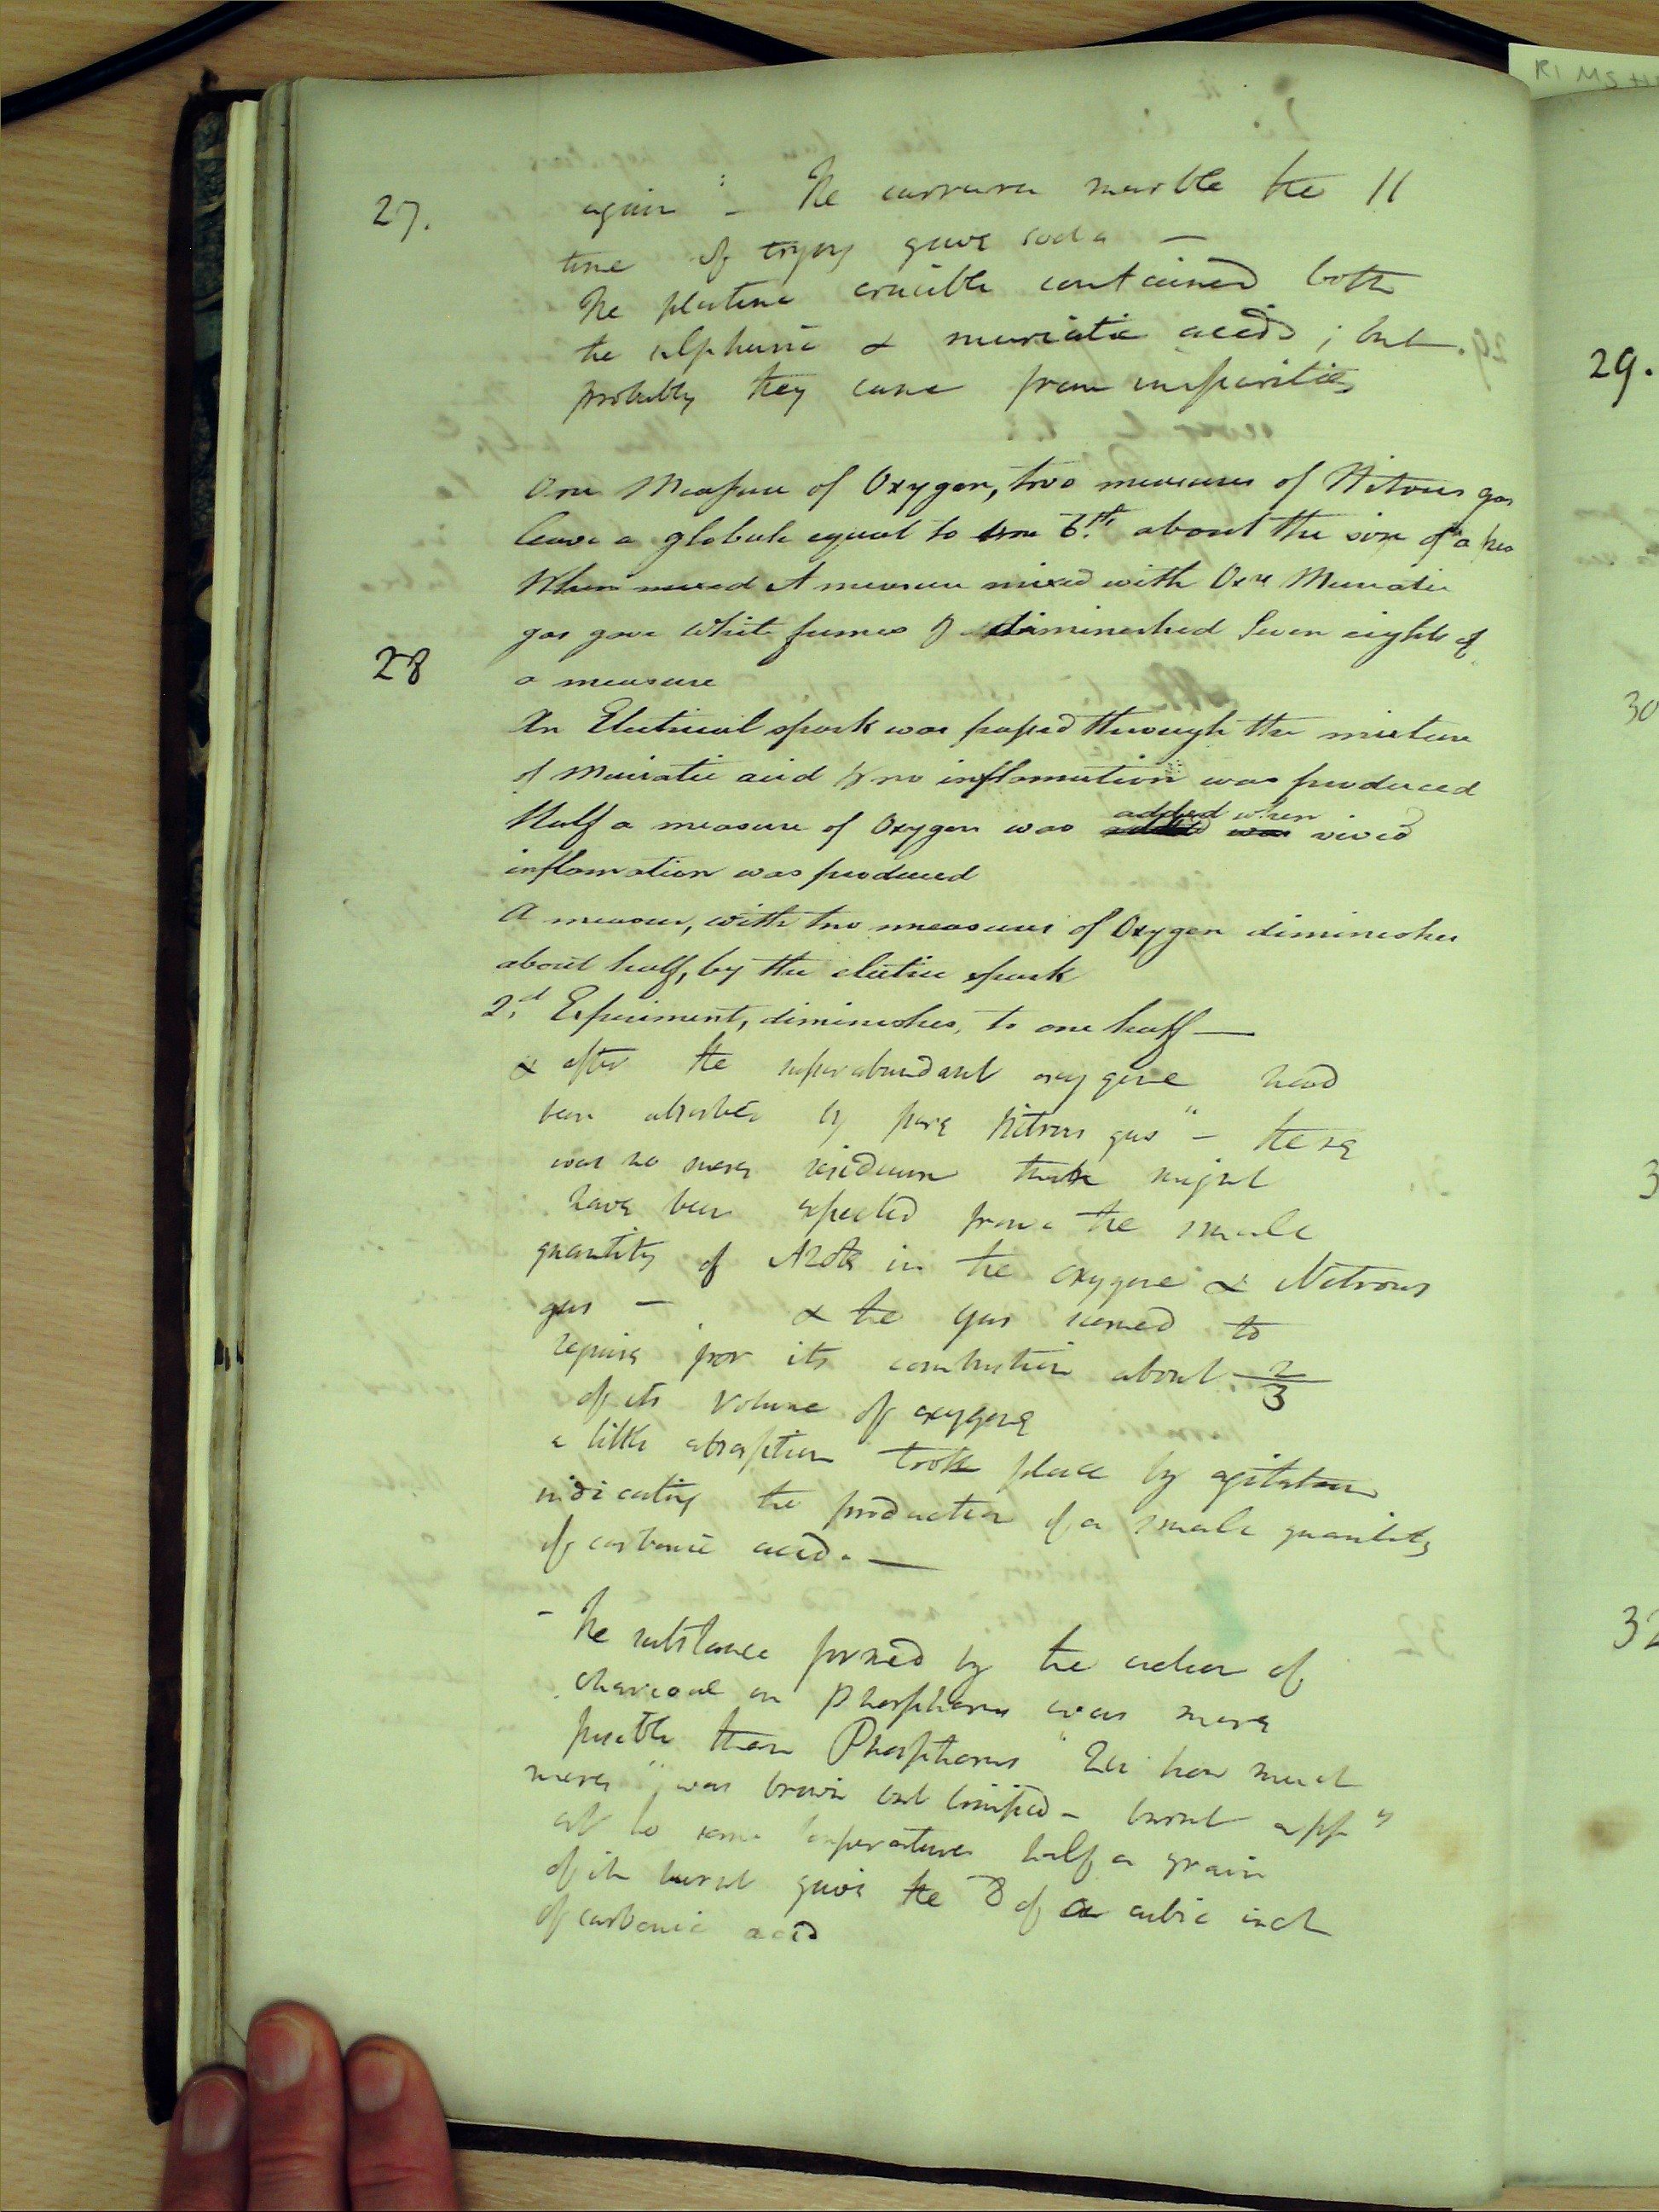 RI MS H
27.
again - The carrara marble the 11
time of trying gave soda -
The platina crucible contained both
the sulphuric & muriatic acids; but
probably they came from impurities
One Measure of Oxygen, two measures of Nitrous gas
leave a globule equal to about the size of a
When mixed A measure mixed with Oxy Muriatic
gas gave white fumes & diminished Seven eights of
28
a measure
An Electrical spark was passed through the mixture
of Muriatic acid & no inflamation was produced
added when
Half a measure of Oxygen was added was vivid
inflamation was produced
A measure, with two measures of Oxygen diminishes
about half, by the electric spark
2.d Experiment, diminishes, to one half —
& after the superabundant oxygene had
been absorbed by pure Nitrous gas" - there
was no more residuum than might
have been expected from the small
quantity of Azote in the oxygene & Nitrous
gas - & the gas seemed to
require for its combustion about 2/3
of its volume of oxygene
a little absorption took place by agitation
indicating the production of a small quantity
of carbonic acid. —
- The substance formed by the action of
charcoal on Phosphorus was more
fusible than Phosphorus how much
more" was brown but limpid - burnt
at same temperature half a grain
of it burnt gave the 8 of a cubic inch
of carbonic acid
29.
30
3
32